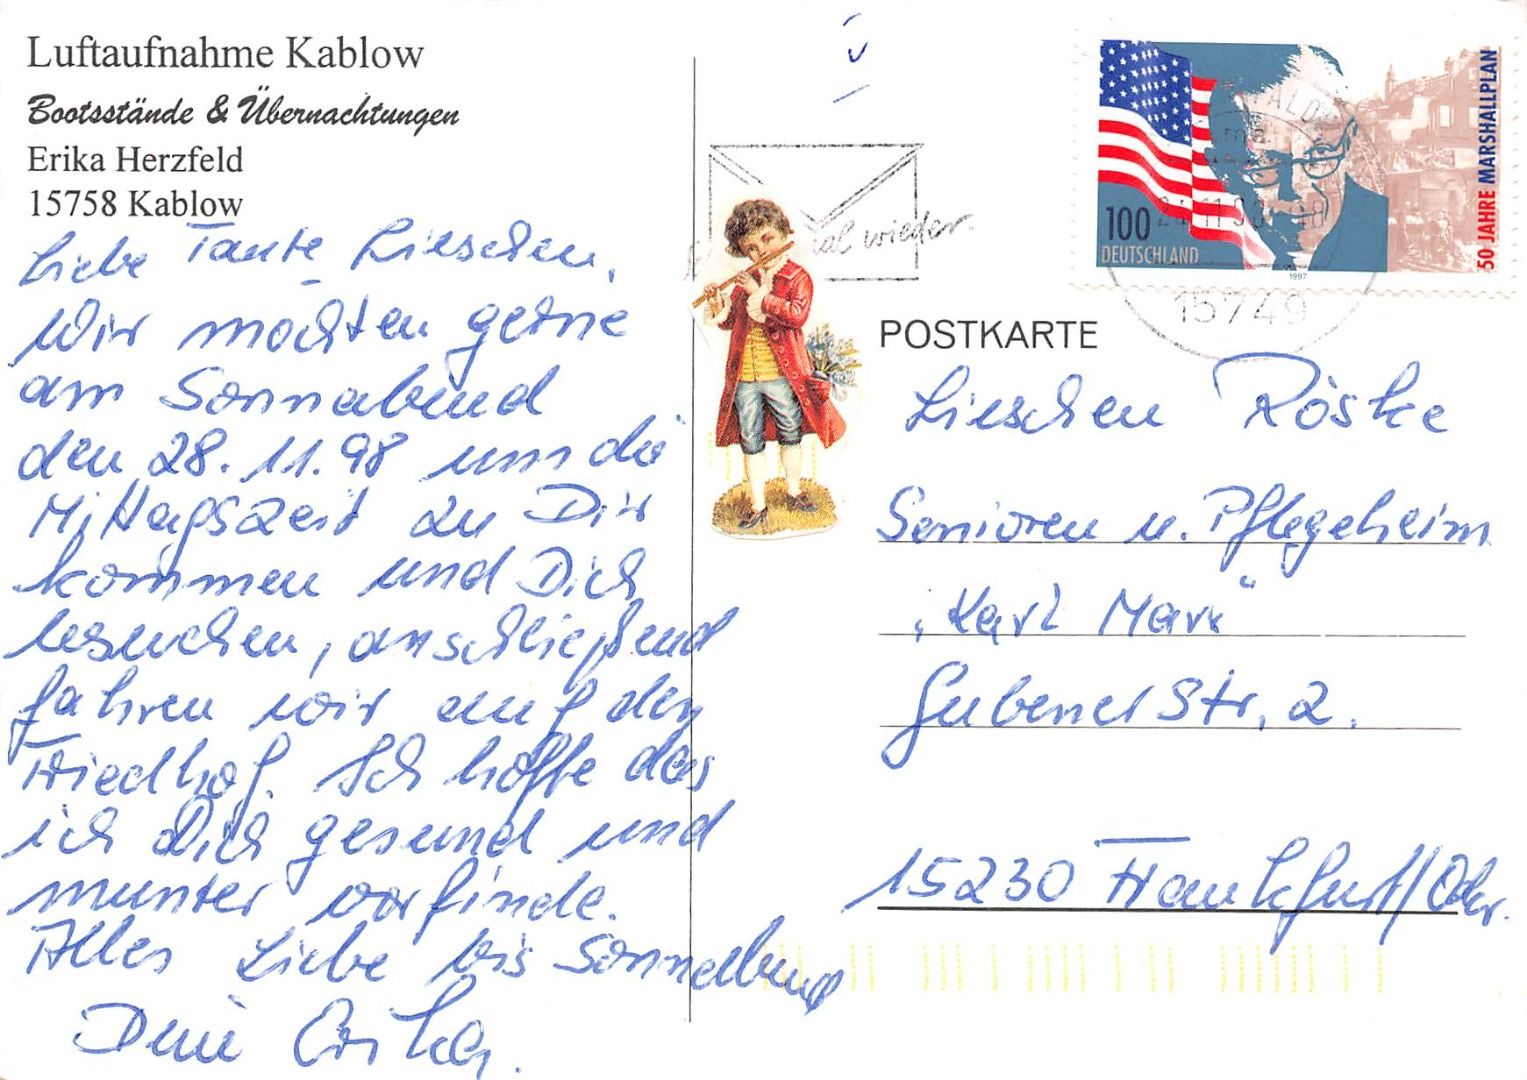 Luftaufnahme Kablow
Bootsstände & Übernachtungen
Erika Herzfeld
15758 Kablow
Liebe Tante Lieschen,
Wir möchten gerne
am Sonnabend
den 28.11.98 um die
Mittagszeit zu Dir
kommen und Dich
besuchen, anschließend
fahren wir auf den
Friedhof. Ich hoffe das
ich Dich gesund und
munter vorfinde.
Alles Liebe bis Sonnabend
Deine Erika.
al wieder.
100
DEUTSCHLAND
1997
50 JAHRE MARSHALLPLAN
15749
POSTKARTE
Lieschen Röske
Senioren u. Pflegeheim
„Karl Marx“
Gubener Str. 2.
15230 Frankfurt/Oder.